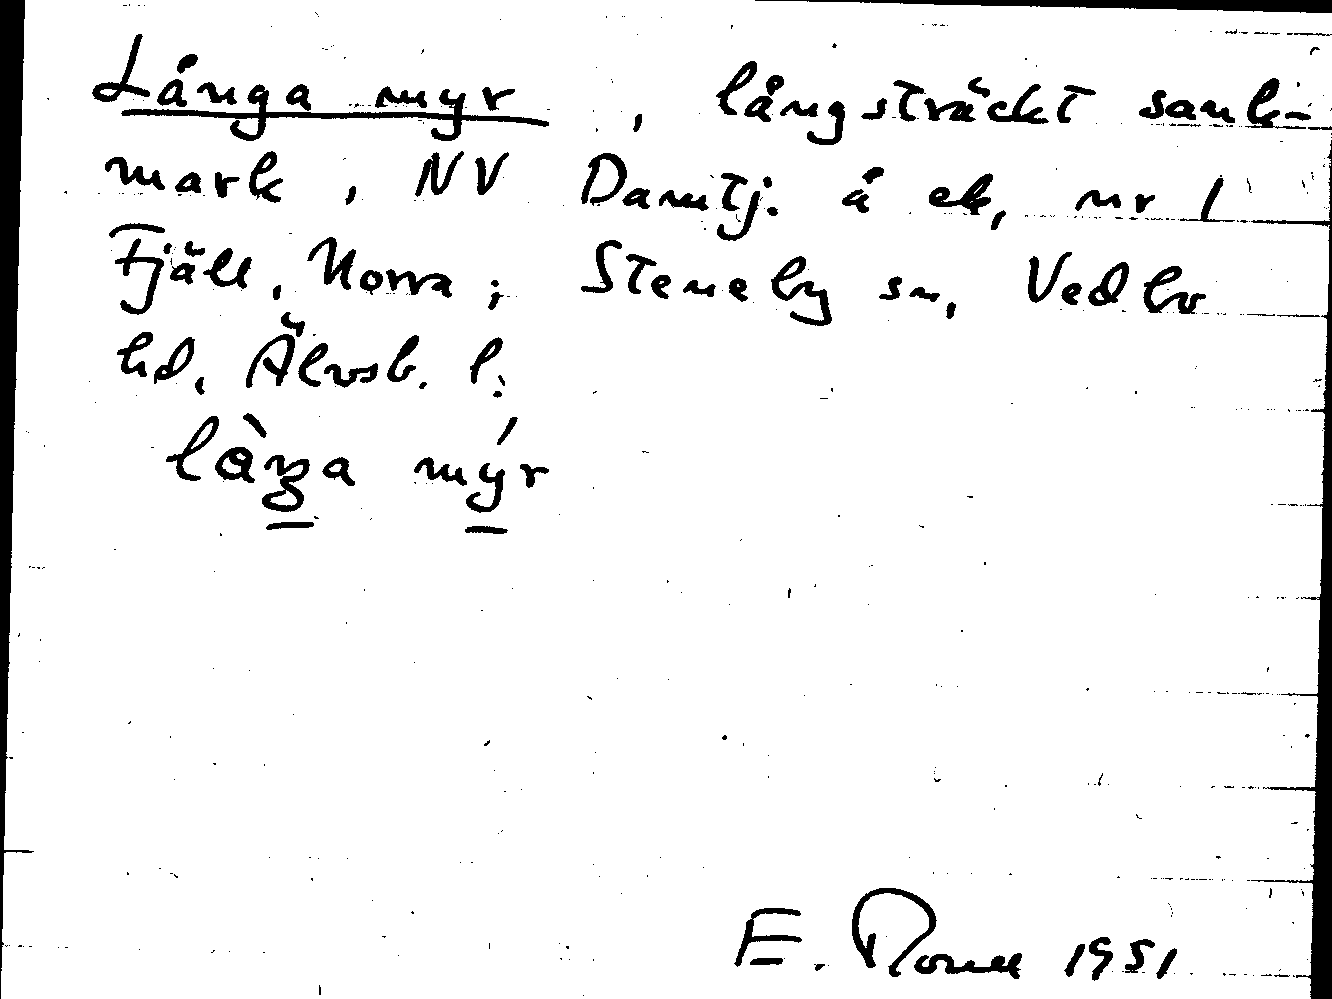 Långa myr, långsträckt sank-
mark, NV Damtj. å ek, nr 1
Fjäll, Norra; Steneby sn, Vedbo
hd, Älvsb. l.
làŋa mýr
E. 1951